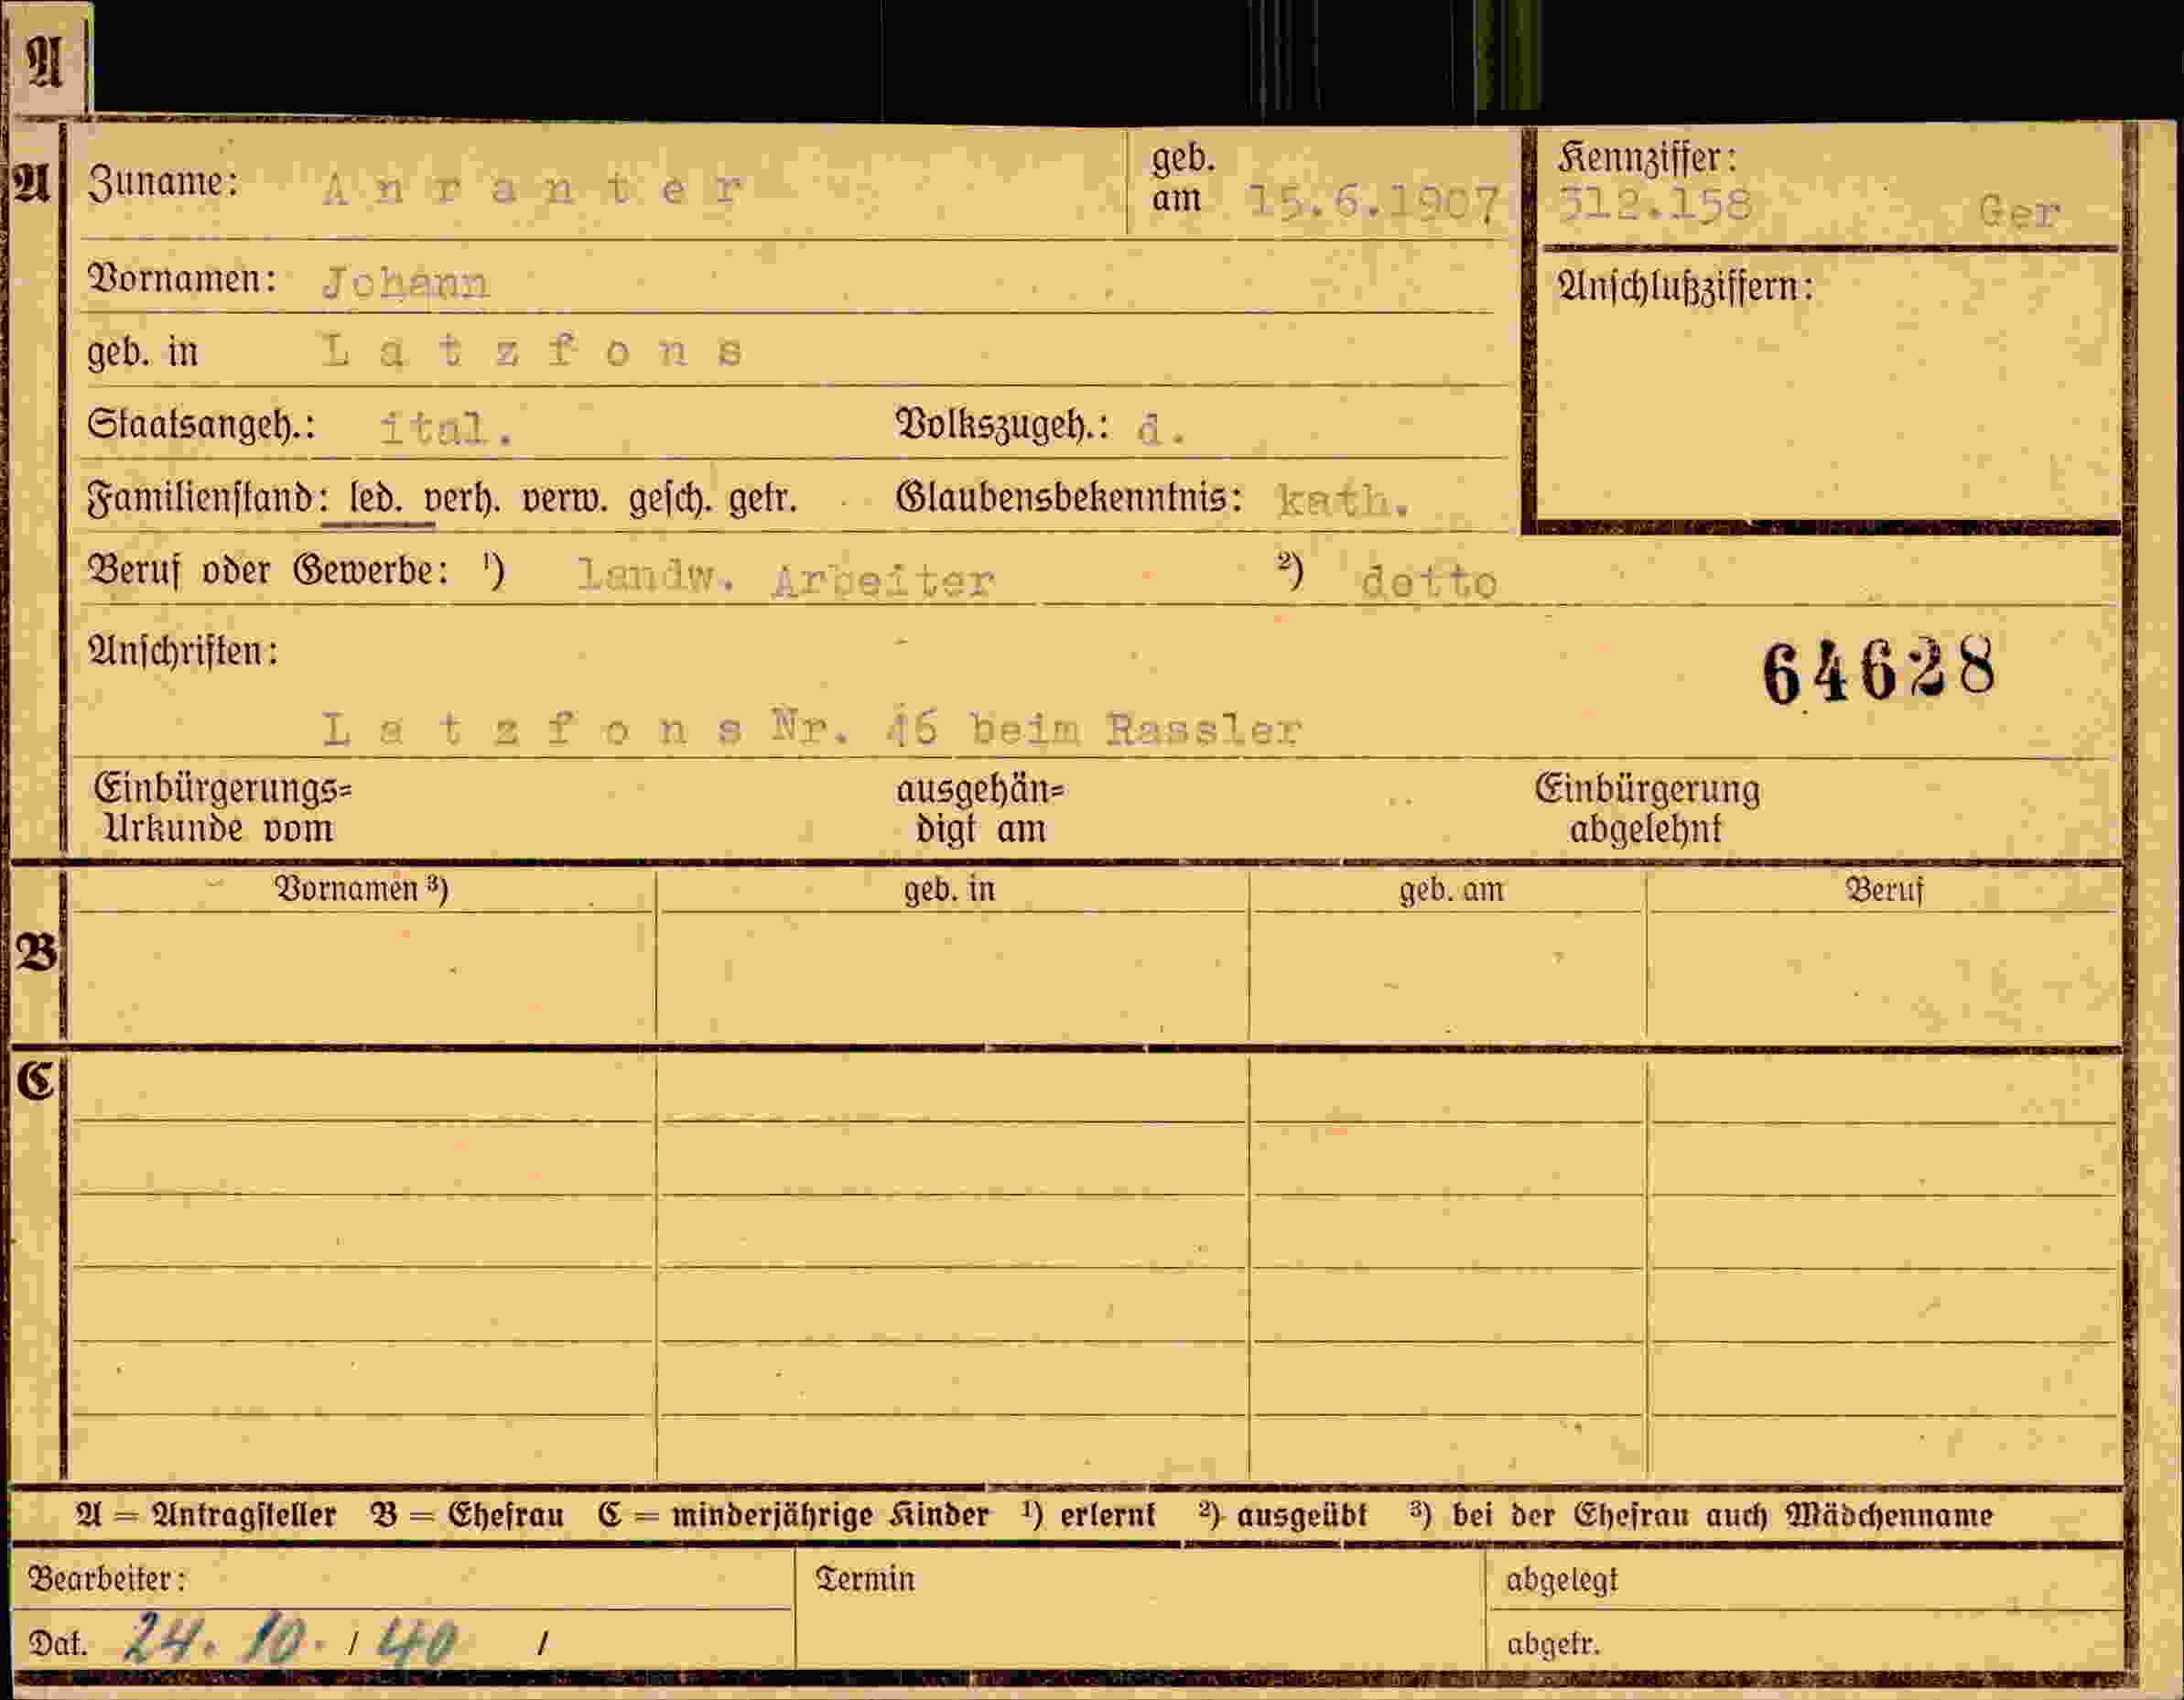 A
A Zuname: A n r a n t e r geb. am 15.6.1907 Kennziffer: 312.158 Ger
Vornamen: Johann Anschlußziffern:
geb. in L a t z f o n s
Staatsangeh.: ital. Volkszugeh.: d.
Familienstand: led. verh. verw. gesch. getr. Glaubensbekenntnis: kath.
Beruf oder Gewerbe: ¹) landw. Arbeiter ²) detto
Anschriften: 64628
L a t z f o n s Nr. 46 beim Rassler
Einbürgerungs= ausgehän= Einbürgerung
Urkunde vom digt am abgelehnt
Vornamen ³) geb. in geb. am Beruf
B
C
A = Antragsteller B = Ehefrau C = minderjährige Kinder ¹) erlernt ²) ausgeübt ³) bei der Ehefrau auch Mädchenname
Bearbeiter: Termin abgelegt
Dat. 24. 10. / 40 / abgetr.